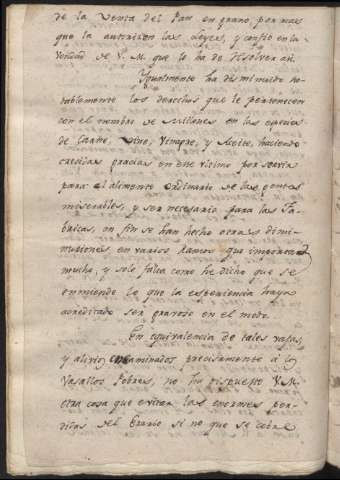 de la Venta del Pan en grano, por mas
que la autorizen las Leyes, y confio en la
bondad de V. M. que lo ha de resolver asi.
Igualmente ha disminuido no-
tablemente los derechos que le pertenecen
con el nombre de Millones en las especies
de Carne, Vino, Vinagre, y Aceite, haciendo
crecidas gracias en este ultimo por servir
para el alimento ordinario de las gentes
miserables, y ser necesario para las Fa-
bricas, en fin se han hecho otras dimi-
nuciones en varios Ramos que importan
mucho, y solo falta como he dicho que se
enmiende lo que la experiencia haya
acreditado ser gravoso en el modo.
En equivalencia de tales rajas,
y alivios encaminados precisamente a los
Vasallos Pobres, no ha dispuesto V. M.
otra cosa que evitar las enormes per-
didas del Erario si no que se cobre